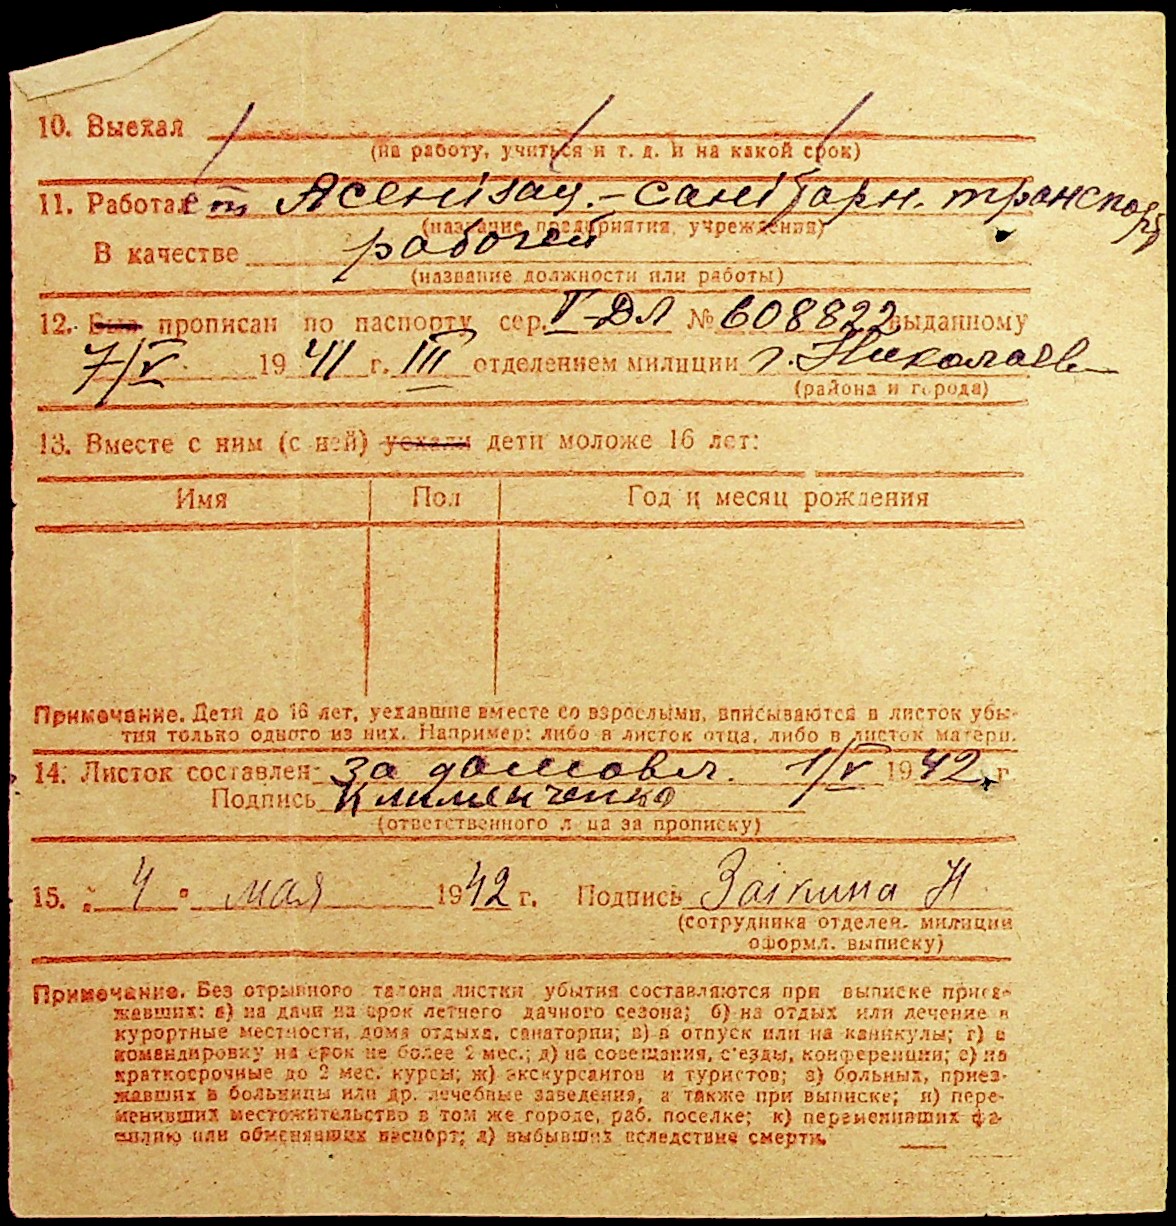 10. Выехал
(на работу, учиться и т. д. и на какой срок)
11. Работает Асенізац.-санітарн. транспорт
(название предприятия, учреждения)
В качестве рабочей
(название должности или работы)
12. Был прописан по паспорту сер. V-ДЛ № 608822 выданному
7/V 1941 г. III отделением милиции г. Николаев
(района и города)
13. Вместе с ним (с ней) уехали дети моложе 16 лет:
Имя Пол Год и месяц рождения
Примечание. Дети до 16 лет, уехавшие вместе со взрослыми, вписываются в листок убы-
тия только одного из них. Например: либо в листок отца, либо в листок матери.
14. Листок составлен за домовл. 1/V 1942 г.
Подпись Клименченко
(ответственного лица за прописку)
15. „4" мая 1942 г. Подпись Заікина Н
(сотрудника отделен. милиции
оформл. выписку)
Примечание. Без отрывного талона листки убытия составляются при выписке приез-
жавших: а) на дачи на срок летнего дачного сезона; б) на отдых или лечение в
курортные местности, дома отдыха, санатории; в) в отпуск или на каникулы; г) в
командировку на срок не более 2 мес.; д) на совещания, с'езды, конференции; е) на
краткосрочные до 2 мес. курсы; ж) экскурсантов и туристов; з) больных, приез-
жавших в больницы или др. лечебные заведения, а также при выписке; и) пере-
менивших местожительство в том же городе, раб. поселке; к) переменивших фа-
милию или обменявших паспорт; л) выбывших вследствие смерти.